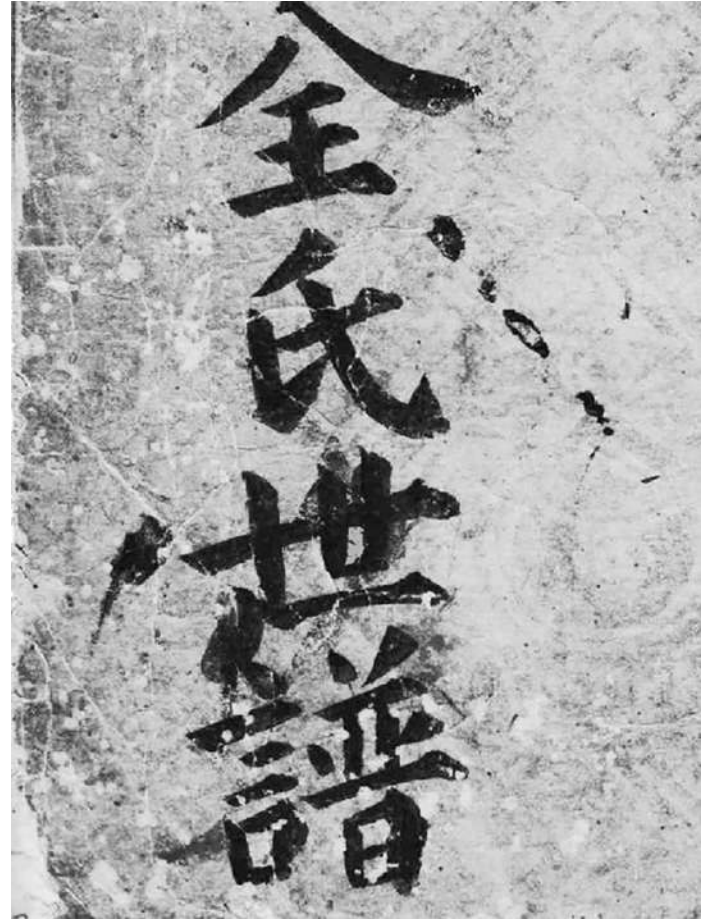 全氏世譜